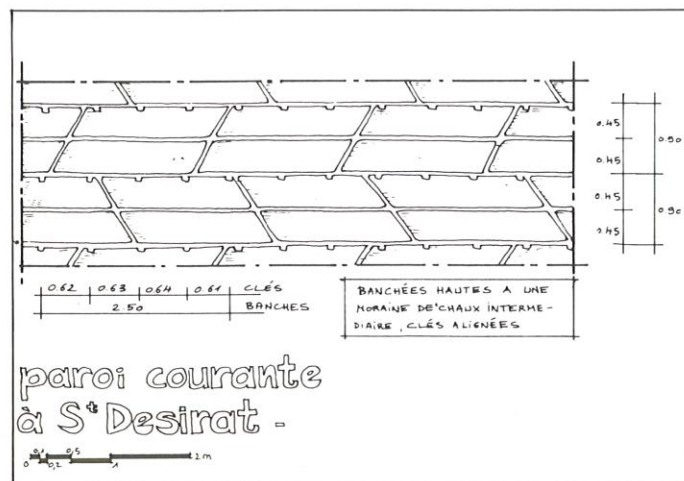 0.45
0.45
0.90
0.45
0.45
0.90
0.62 0.63 0.64 0.61 CLÉS
2.50 BANCHES
BANCHÉES HAUTES A UNE
MORAINE DE CHAUX INTERME-
DIAIRE, CLÉS ALIGNÉES
paroi courante
à St Desirat -
0 0,1 0,2 0,5 1 2m